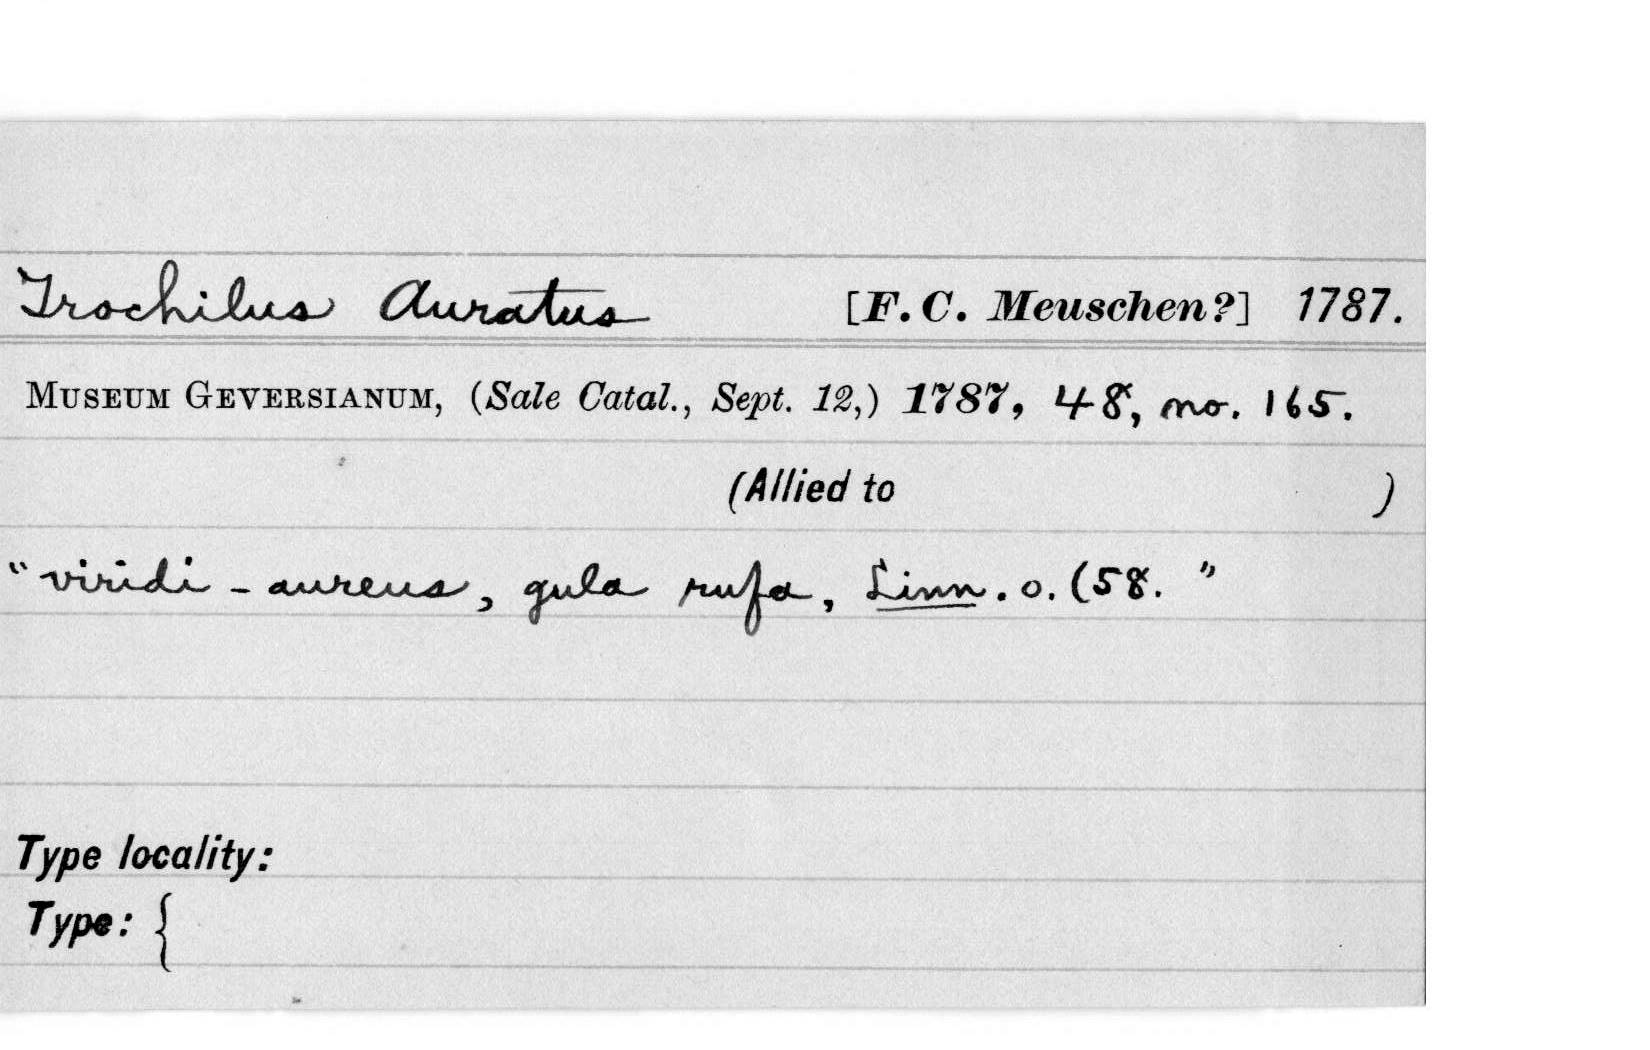 Trochilus Auratus [F. C. Meuschen?] 1787.
MUSEUM GEVERSIANUM, (Sale Catal., Sept. 12,) 1787, 48, no. 165.
(Allied to )
"viridi-aureus, gula rufa, Linn. o. (58. "
Type locality:
Type: {